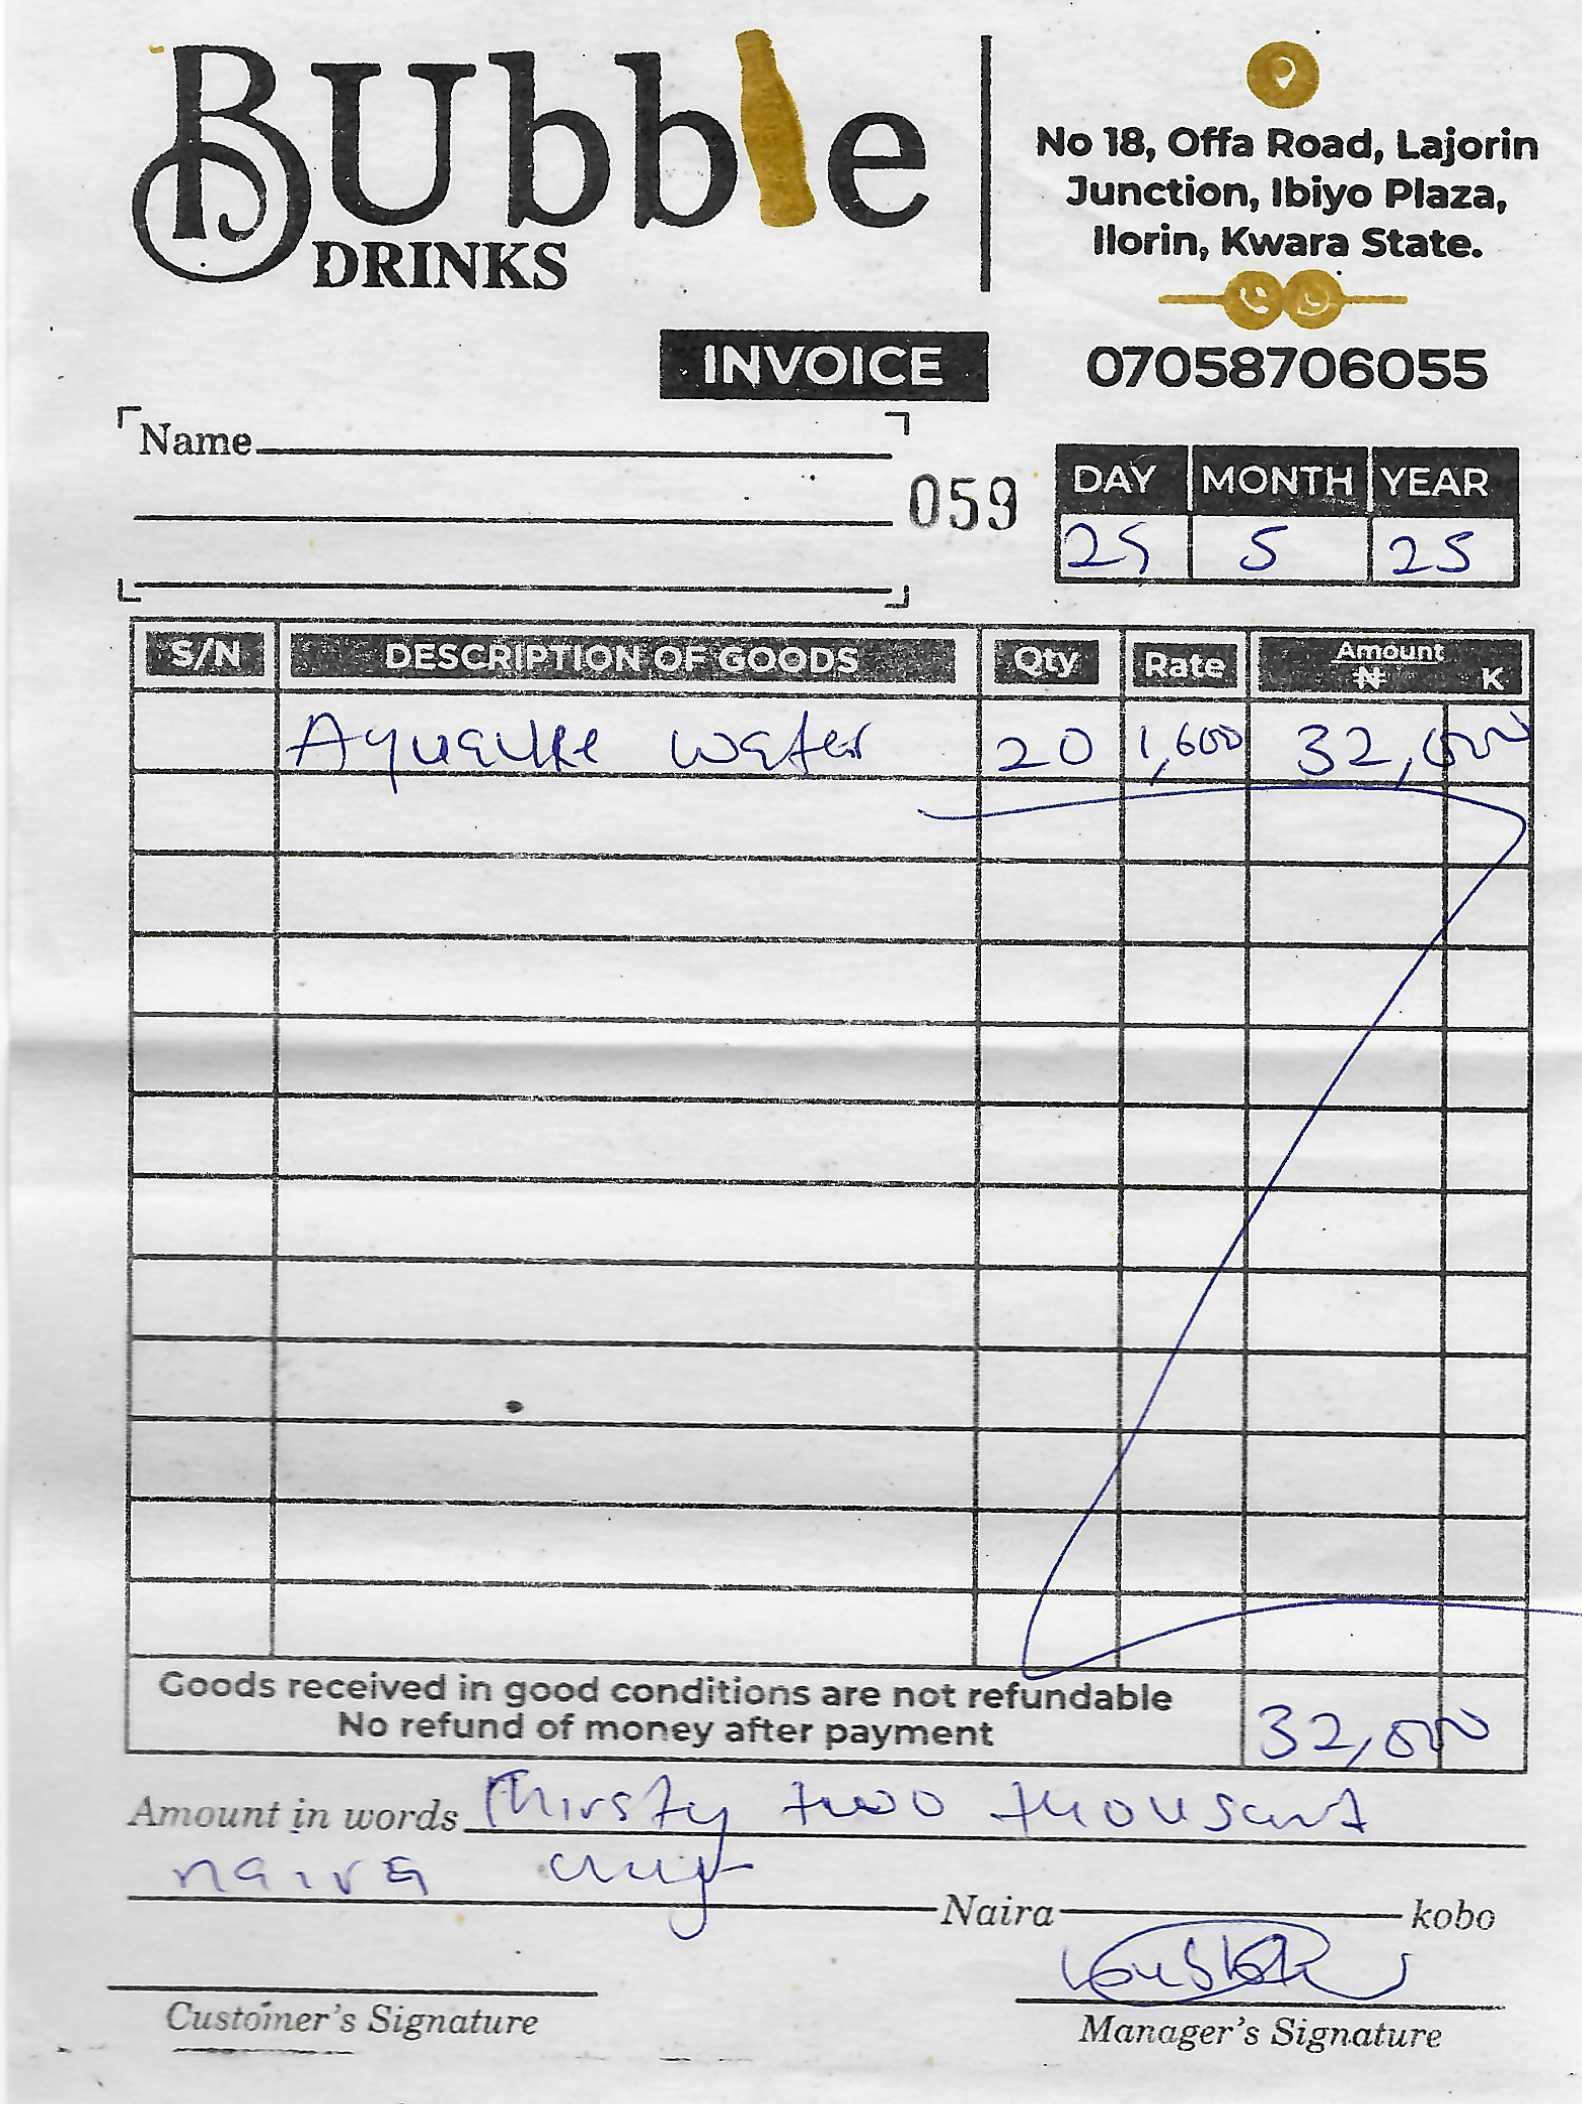 Bubble
DRINKS
No 18, Offa Road, Lajorin
Junction, Ibiyo Plaza,
Ilorin, Kwara State.
07058706055
INVOICE
Name
059
DAY MONTH YEAR
25 5 25
S/N DESCRIPTION OF GOODS Qty Rate Amount
₦ K
water 20 1,600 32,000
Goods received in good conditions are not refundable
No refund of money after payment
32,000
Amount in words Thirsty two thousant
naira only
Naira kobo
Customer's Signature
Manager's Signature